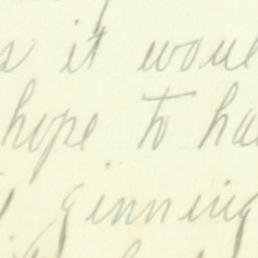 it woul
hope to ha
ginning